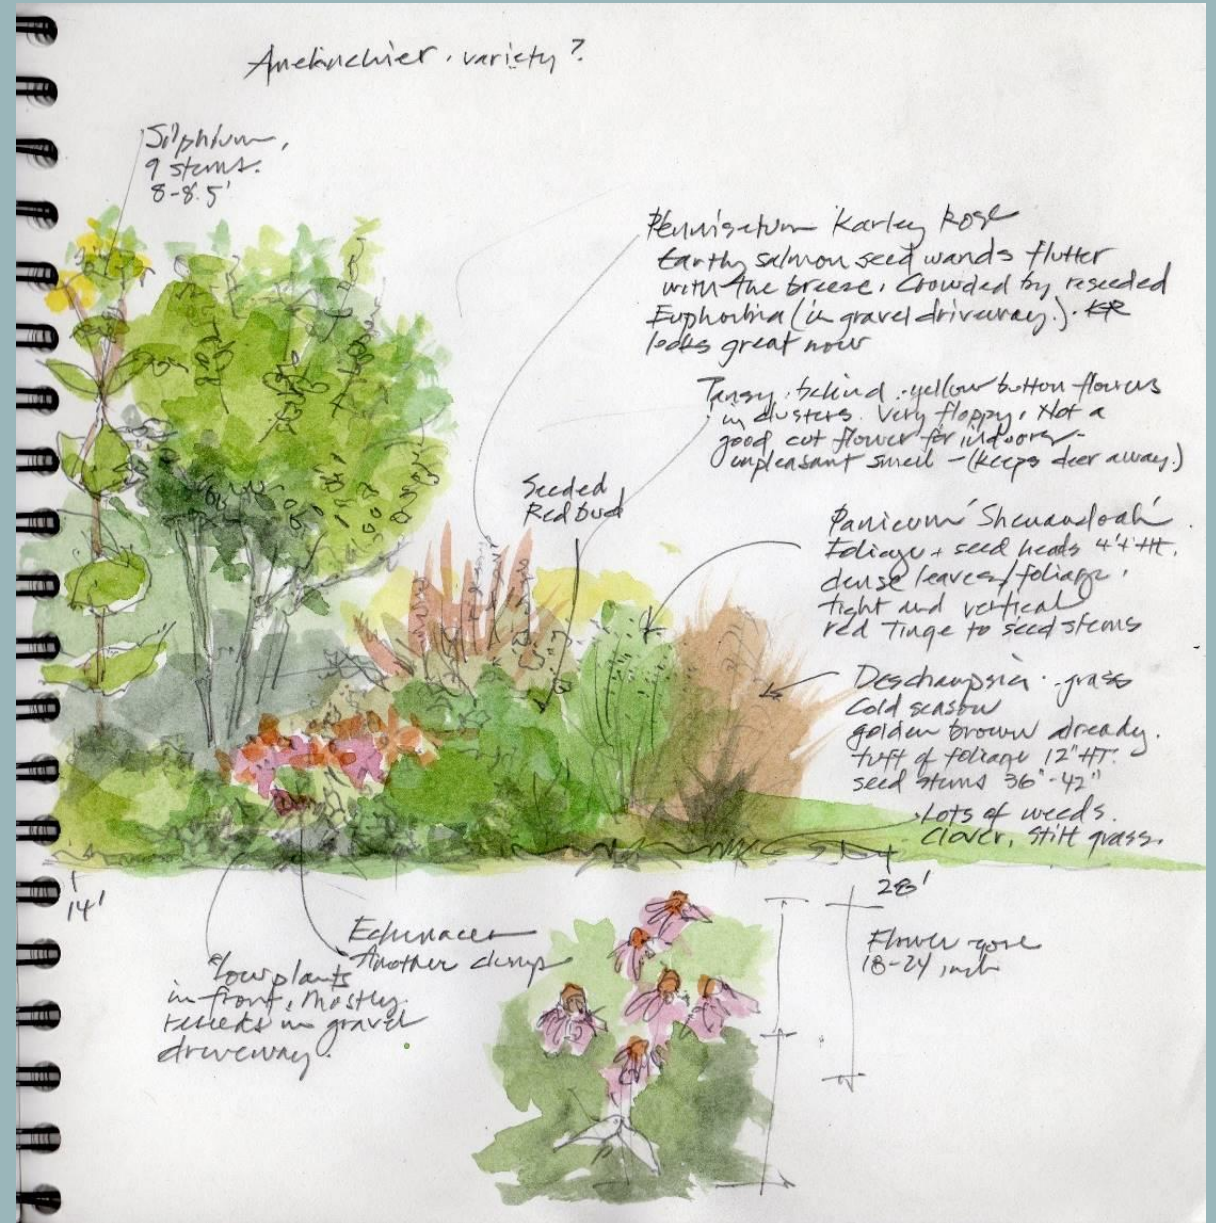 Amelanchier . variety ?
Silphium,
9 stems.
8-8.5'
Pennisetum Karley Rose
Earthy salmon seed wands flutter
with the breeze. Crowded by reseeded
Euphorbia (in gravel driveway.). KR
looks great now
Tansy behind . yellow button flowers
in clusters. Very floppy. Not a
good cut flower for indoors -
unpleasant smell - (keeps deer away.)
Seeded
Redbud
Panicum 'Shenandoah'
Foliage + seed heads 4'+ HT.
dense leaves/foliage.
tight and vertical
red tinge to seed stems
Deschampsia . grass
Cold season
golden brown already.
tuft of foliage 12" HT.
seed stems 36"-42"
Lots of weeds.
Clover, stilt grass.
14'
28'
Echinacea
Another clump
Low plants
in front, mostly
in gravel
driveway.
Flower zone
18-24 inch